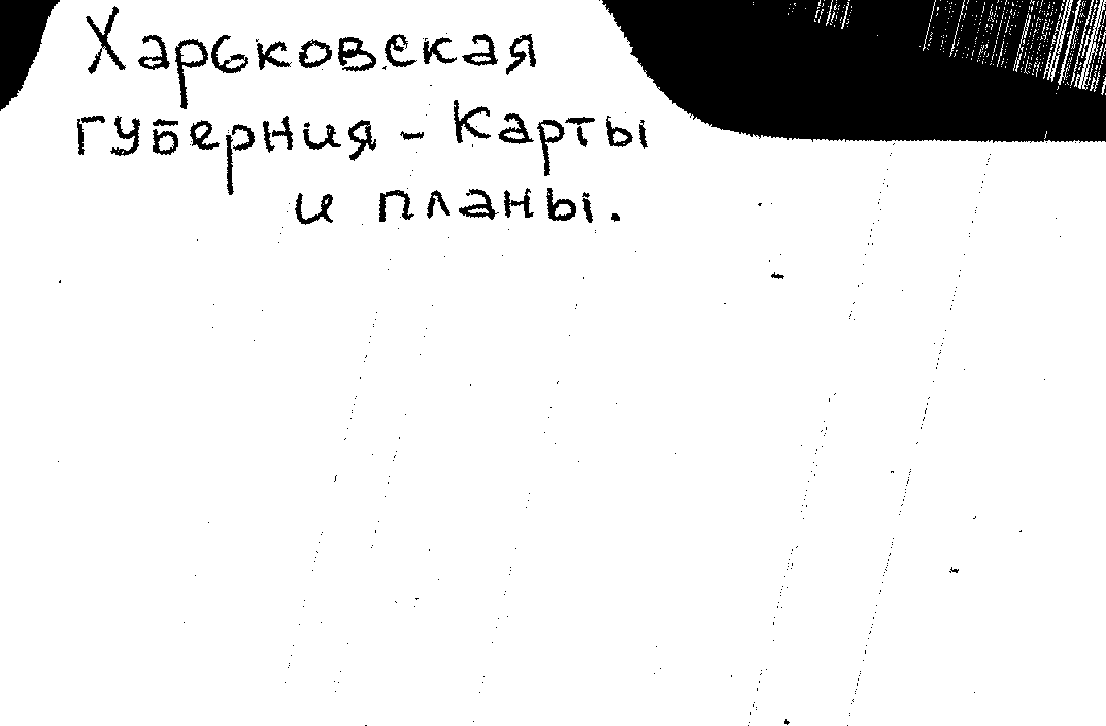 Харьковская
губерния - Карты
и планы.